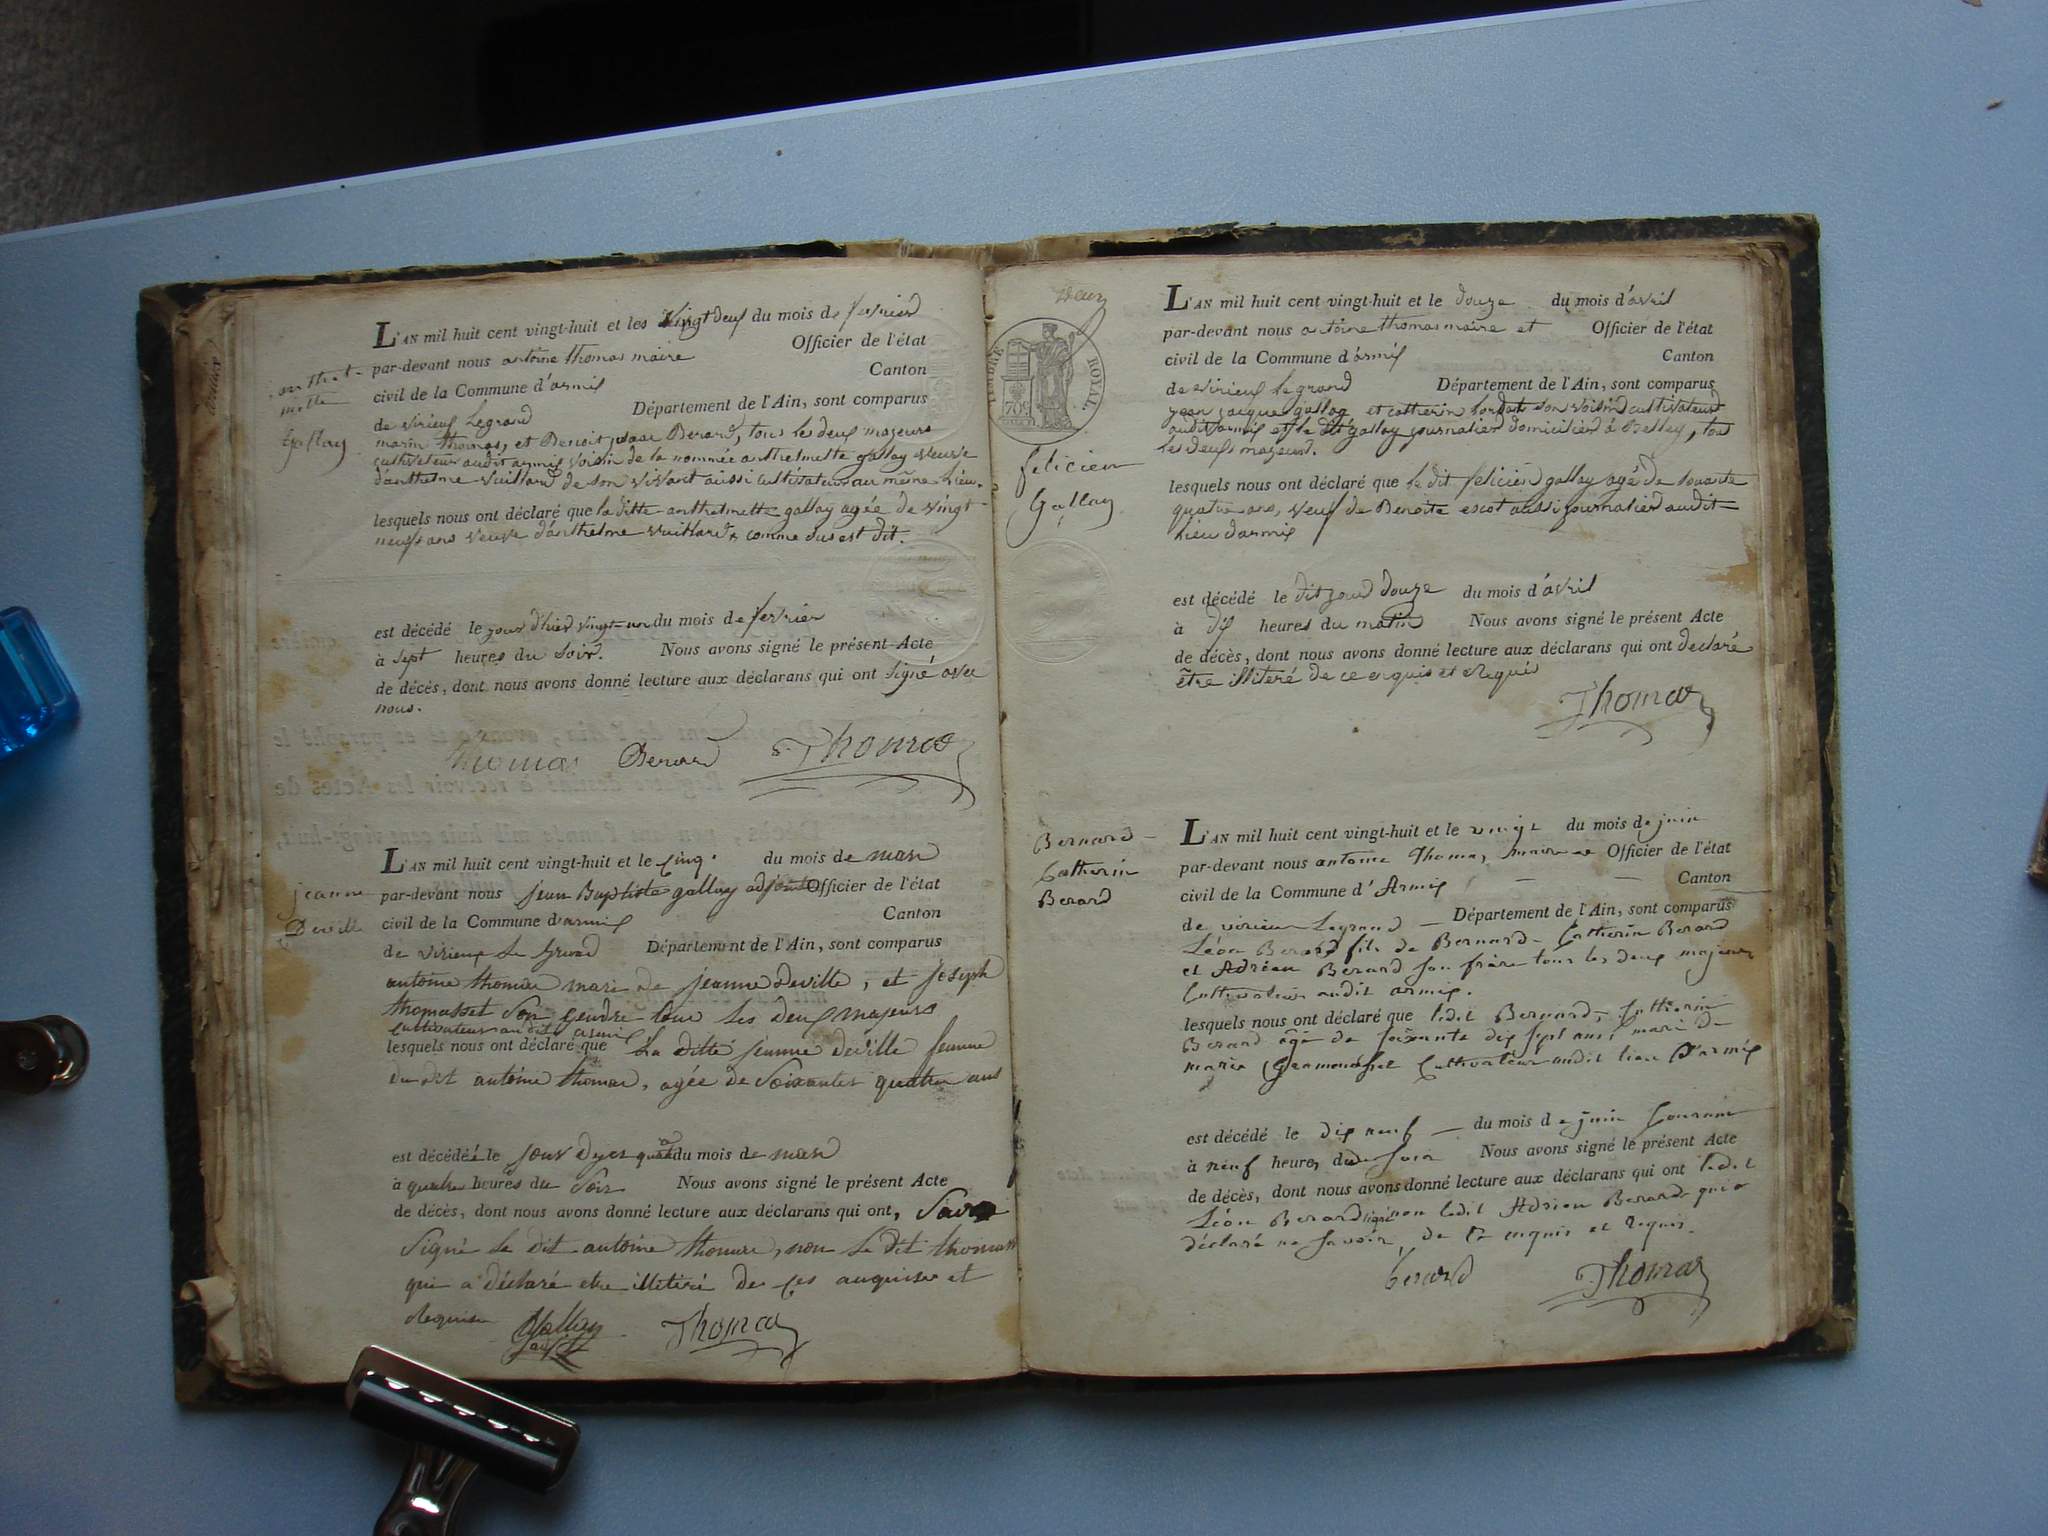 anthel-
mette
Gallay
L'AN mil huit cent vingt-huit et les vingt deux du mois de fevrier
par-devant nous antoine thomas maire Officier de l'état
civil de la Commune d'armix Canton
de virieux Legrand Département de l'Ain, sont comparus
marin thomas, et Benoit isaac Berard, tous les deux majeurs
cultivateur audit armix voisin de la nommée anthelmette gallay veuve
d'anthelme vuillard de son vivant aussi cultivateur au même Lieu.
lesquels nous ont déclaré que la ditte anthelmette gallay agée de vingt-
neuf ans veuve d'anthelme vuillard, comme dus est dit.
est décédé le jour d'hier vingt-un du mois de fevrier
à sept heures du soir. Nous avons signé le présent Acte
de décès, dont nous avons donné lecture aux déclarans qui ont signé avec
nous.
thomas Berard Thomas
jeanne
Deville
L'AN mil huit cent vingt-huit et le cinq. du mois de mars
par-devant nous jean Baptiste gallay adjoint Officier de l'état
civil de la Commune d'armix Canton
de virieux Le Grand Département de l'Ain, sont comparus
antoine thomas mari de jeanne deville, et joseph
thomasset son gendre tous les deux majeurs
cultivateur audit armix
lesquels nous ont déclaré que La ditte jeanne deville femme
du dit antoine thomas, agée de soixante quatre ans
est décédée le jour dyer quatre du mois de mars
à quatre heures du soir Nous avons signé le présent Acte
de décès, dont nous avons donné lecture aux déclarans qui ont,
signé le dit antoine thomas, non le dit thomass
qui a déclaré etre illitéré de ces enquise et
Requise Gallay Thomas
adjt
deux
TIMBRE ROYAL
70c
felicien
Gallay
L'AN mil huit cent vingt-huit et le douze du mois d'avril
par-devant nous antoine thomas maire et Officier de l'état
civil de la Commune d'armix Canton
de virieux le grand Département de l'Ain, sont comparus
jean jacque gallay et catherin son voisin cultivateur
audit armix et le dit gallay journalier domicilier à Belley, tous
les deux majeurs.
lesquels nous ont déclaré que le dit felicien gallay agé de
quatre ans, veuf de Benoite escot aussi journalier audit
Lieu d'armix
est décédé le dit jour douze du mois d'avril
à dix heures du matin Nous avons signé le présent Acte
de décès, dont nous avons donné lecture aux déclarans qui ont declaré
être illitéré de ce enquis et Requis
Thomas
Bernard-
Catherin
Berard
L'AN mil huit cent vingt-huit et le vingt du mois de juin
par-devant nous antoine Thomas, maire et Officier de l'état
civil de la Commune d'Armix Canton
de virieux Legrand Département de l'Ain, sont comparus
Léon Berard fils de Bernard-Catherin Berard
et Adrien Berard son frère tous les deux majeurs
Cultivateurs audit armix.
lesquels nous ont déclaré que ledit Bernard-Catherin
Berard âgé de soixante dix sept ans, mari de
marie Cultivateur audit lieu D'armix
est décédé le dix neuf du mois de juin Courant
à neuf heures du soir Nous avons signé le présent Acte
de décès, dont nous avons donné lecture aux déclarans qui ont ledit
Léon Berard signé non ledit Adrien Berard qui a
déclaré ne savoir, de ce enquis et requis.
berard Thomas